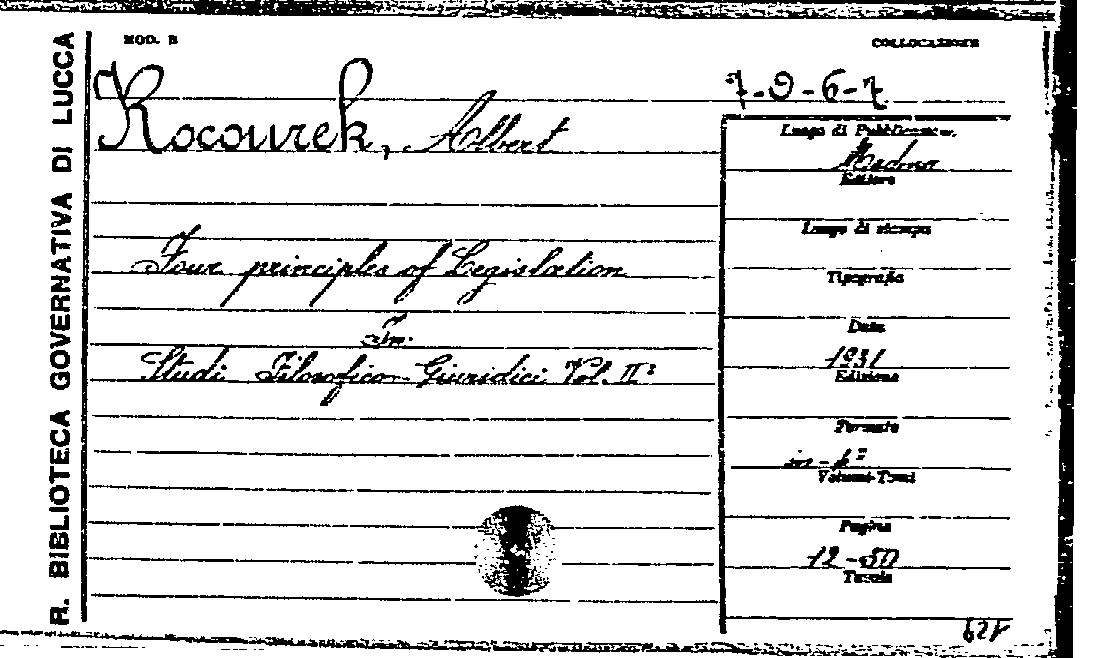 R. BIBLIOTECA GOVERNATIVA DI LUCCA
MOD. B
COLLOCAZIONE
7-9-6-7
Kocourek, Albert
Four principles of Legislation
In:
Studi Filosofico-Giuridici Vol. II°
Luogo di Pubblicazione
Modena
Editore
Luogo di stampa
Tipografia
Data
1931
Edizione
Formato
in-4°
Volumi-Tomi
Pagine
12-
Tavole